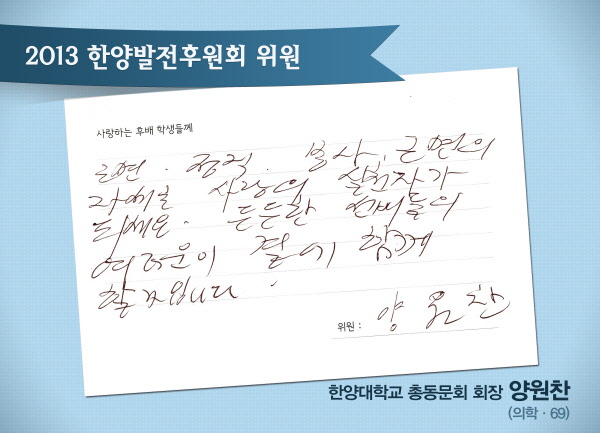 2013 한양발전후원회 위원
사랑하는 후배 학생들께
근면 · 정직 · 봉사, 근면의
자세로 사랑의 실천자가
되세요. 든든한 선배들이
여러분의 곁에 함께
할 것입니다.
위원 : 양원찬
한양대학교 총동문회 회장 양원찬
(의학 · 69)